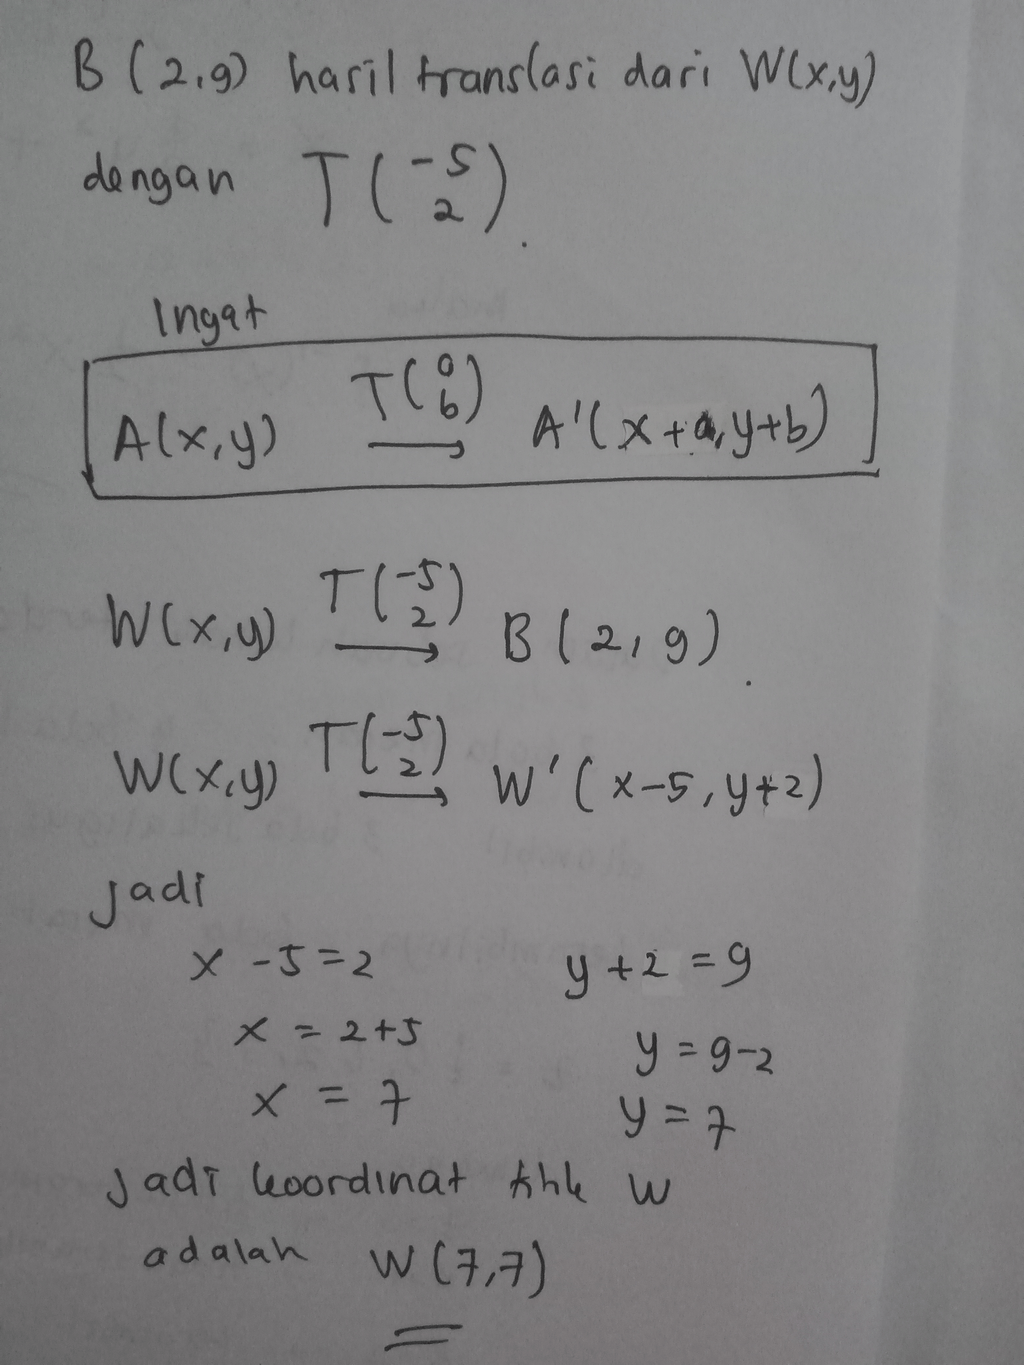 B (2,9) hasil translasi dari W(x,y)
dengan T(-5 2).
Ingat
A(x,y) T(a b) → A'(x+a, y+b)
W(x,y) T(-5 2) → B(2,9).
W(x,y) T(-5 2) → W'(x-5, y+2)
Jadi
x - 5 = 2 y + 2 = 9
x = 2+5 y = 9-2
x = 7 y = 7
Jadi koordinat titik W
adalah W(7,7)